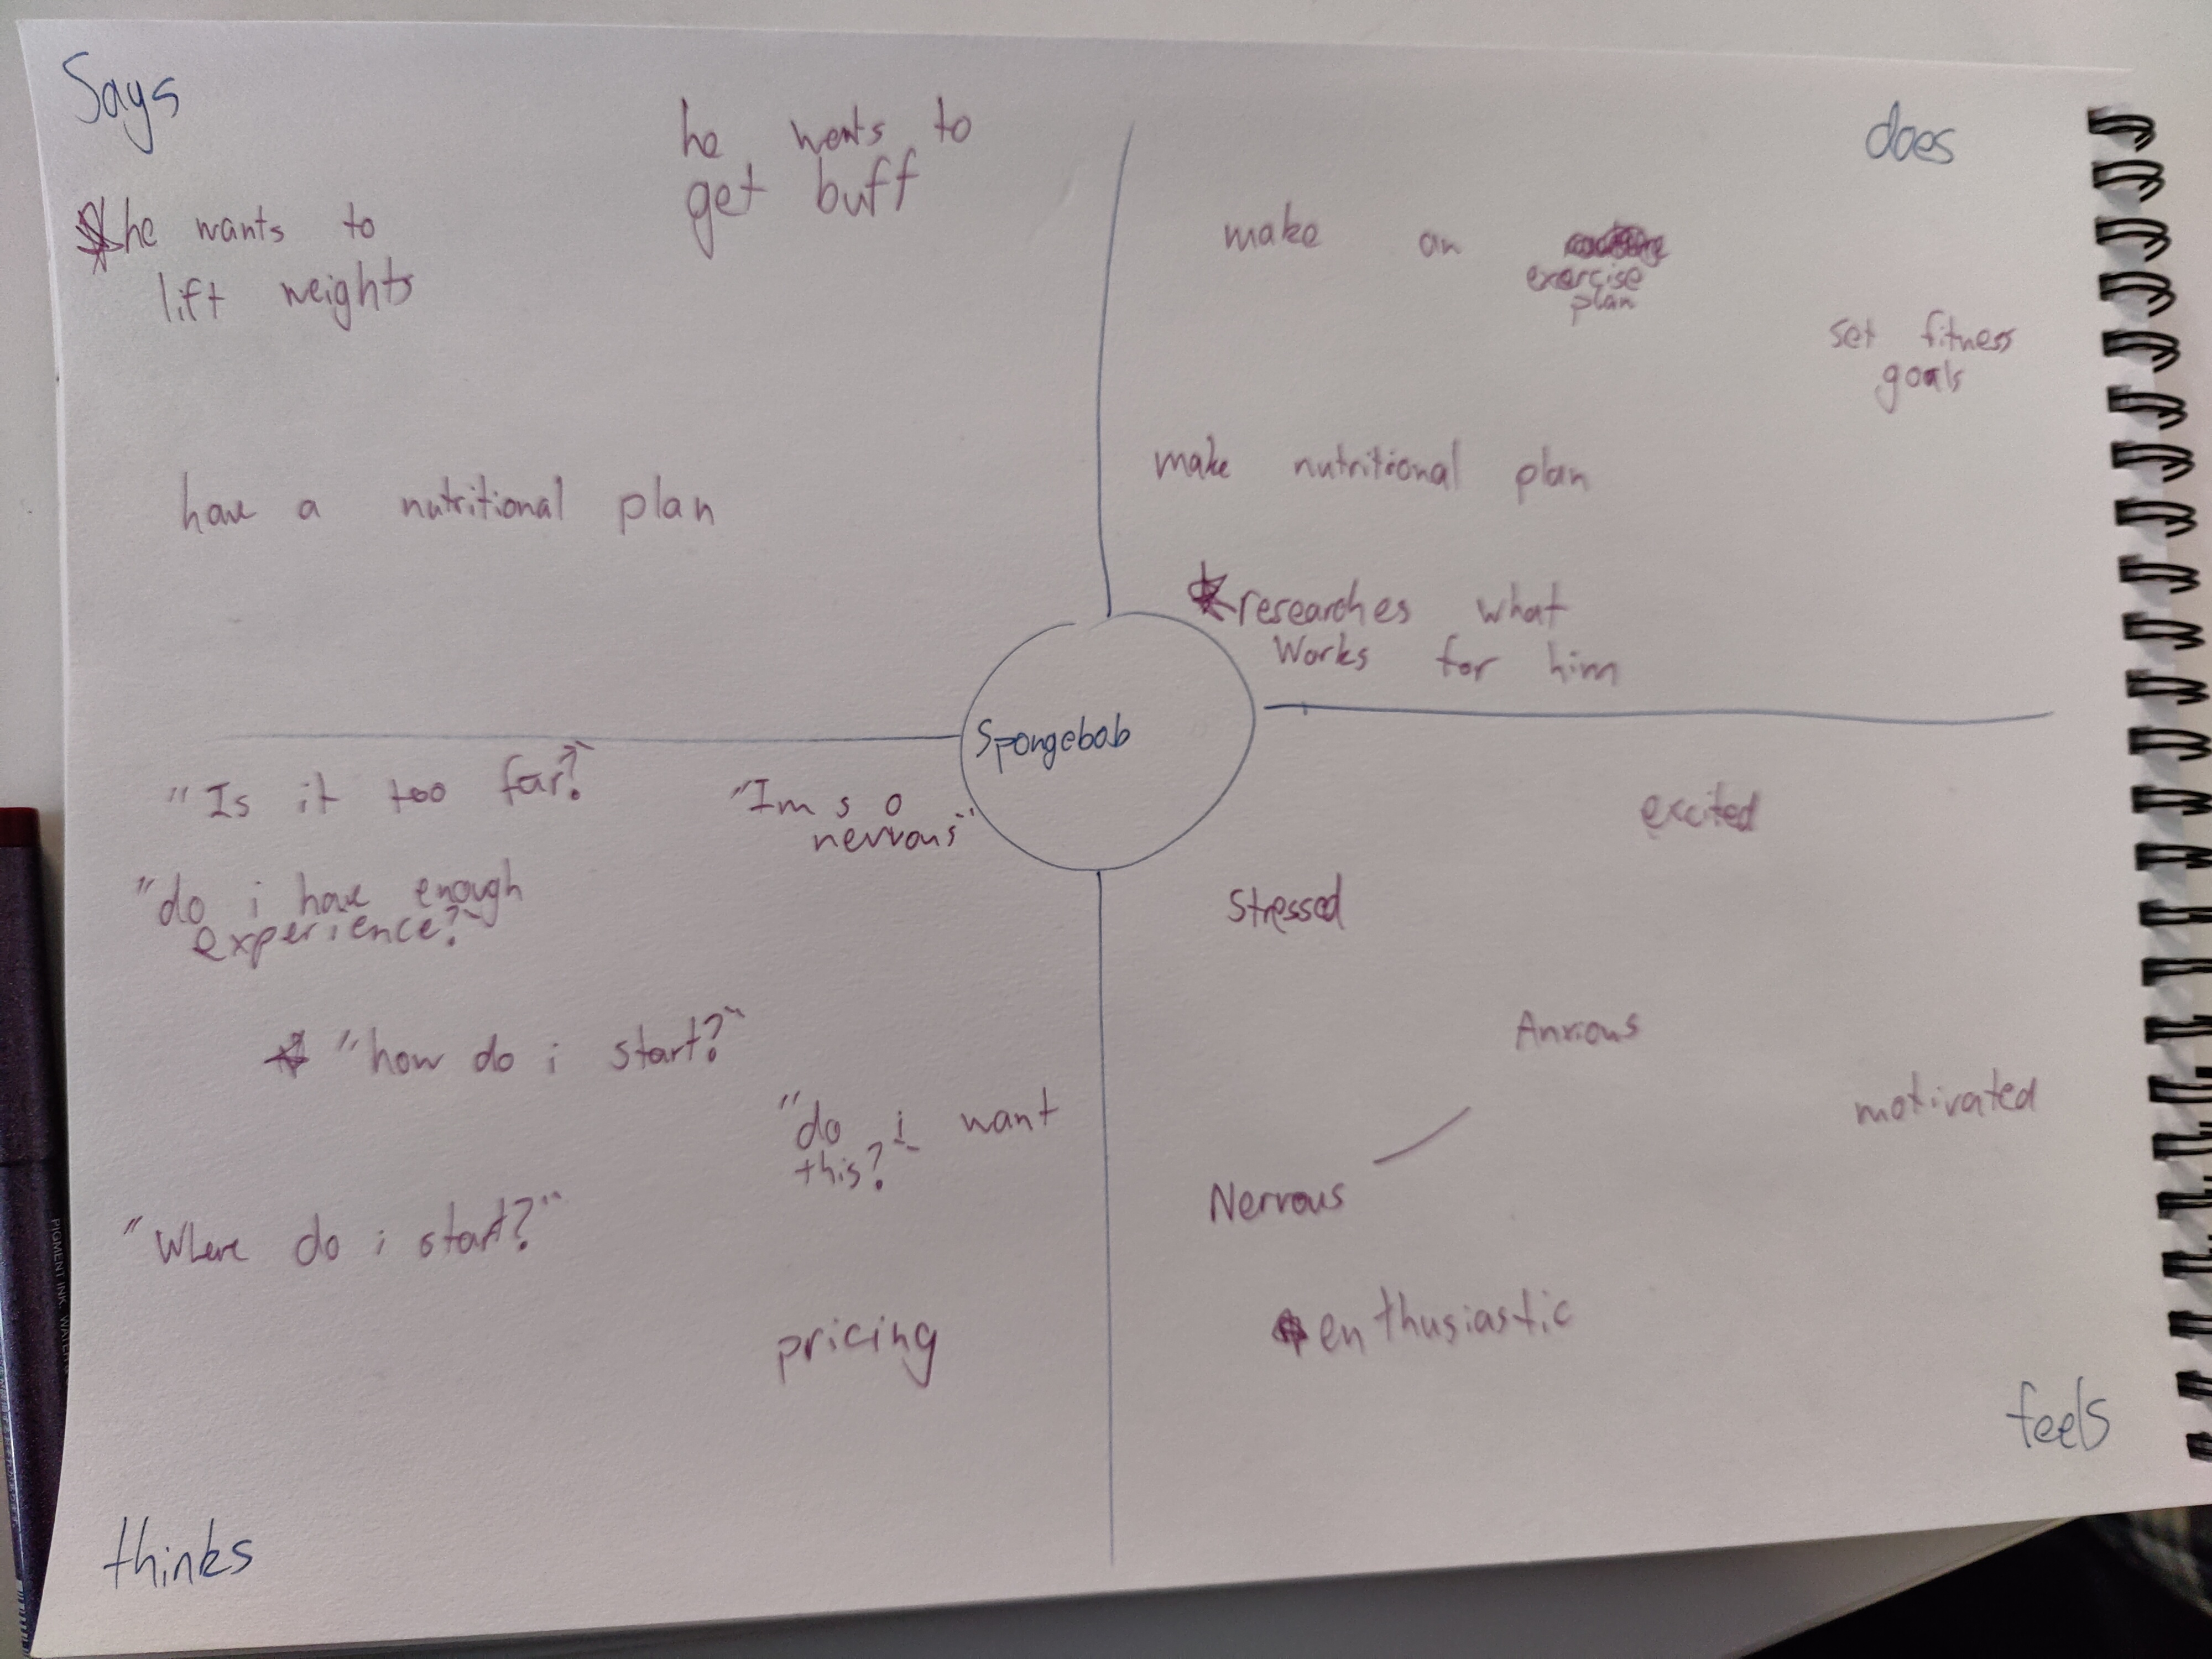 Says
he wants to
get buff
he wants to
lift weights
have a nutritional plan
does
make an
exercise
plan
set fitness
goals
make nutritional plan
researches what
works for him
Spongebob
"Is it too far?"
"Im so
nervous"
"do i have enough
experience?"
"how do i start?"
"do i want
this?"
"Where do i start?"
pricing
thinks
excited
Stressed
Anxious
motivated
Nervous
enthusiastic
feels
PIGMENT INK. WATER